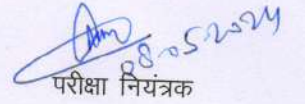 08.05.2024
परीक्षा नियंत्रक